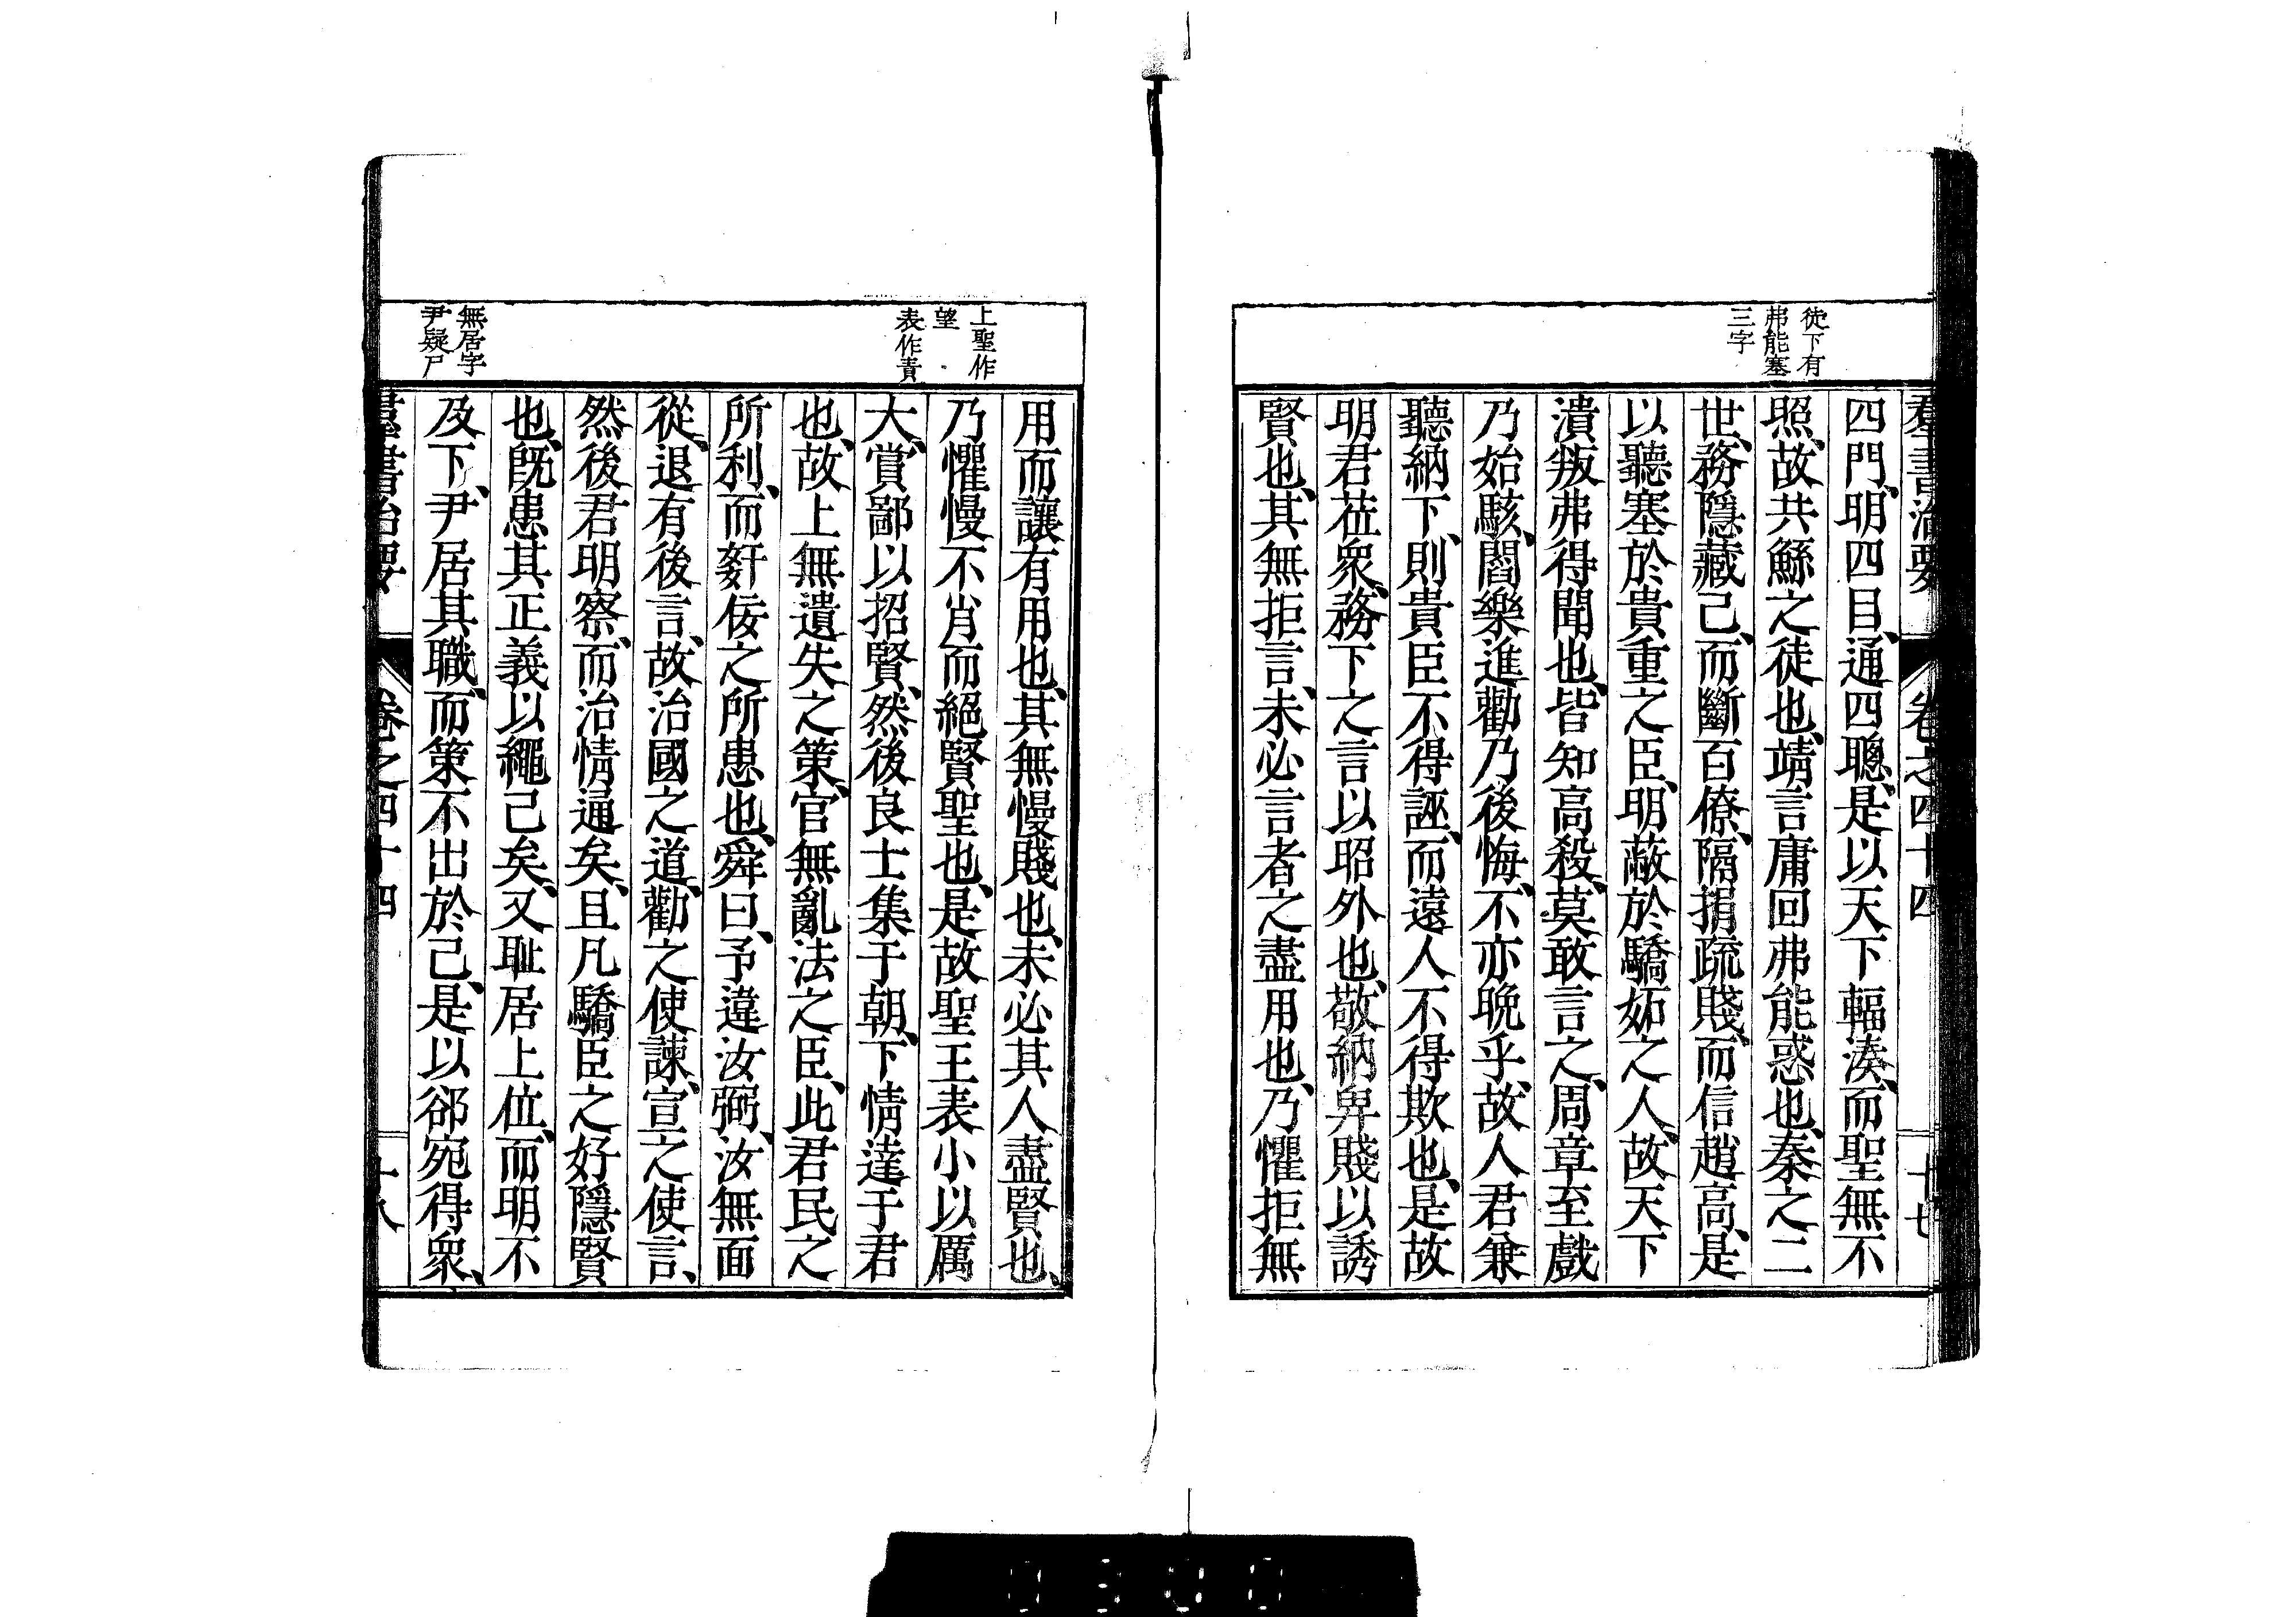 群書治要 卷之四十四 十七
徒下有
弗能塞
三字
四門、明四目、通四聰、是以天下輻湊、而聖無不
照、故共鯀之徒也、靖言庸回弗能惑也、秦之二
世、務隱藏己、而斷百僚、隔捐疏賤、而信趙高、是
以聽塞於貴重之臣、明蔽於驕妬之人、故天下
潰叛弗得聞也、皆知高殺、莫敢言之、周章至戲
乃始駭、閻樂進勸乃後悔、不亦晚乎、故人君兼
聽納下、則貴臣不得誣、而遠人不得欺也、是故
明君莅衆、務下之言以昭外也、敬納卑賤以誘
賢也、其無拒言、未必言者之盡用也、乃懼拒無
上聖作
望
表作責
無居字
尹疑尸
用而讓有用也、其無慢賤也、未必其人盡賢也、
乃懼慢不肖而絕賢聖也、是故聖王表小以厲
大、賞鄙以招賢、然後良士集于朝、下情達于君
也、故上無遺失之策、官無亂法之臣、此君民之
所利、而姧佞之所患也、舜曰、予違汝弼、汝無面
從、退有後言、故治國之道、勸之使諫、宣之使言、
然後君明察、而治情通矣、且凡驕臣之好隱賢
也、旣患其正義以繩己矣、又耻居上位、而明不
及下、尹居其職、而策不出於己、是以郤宛得衆、
羣書治要 卷之四十四 十八